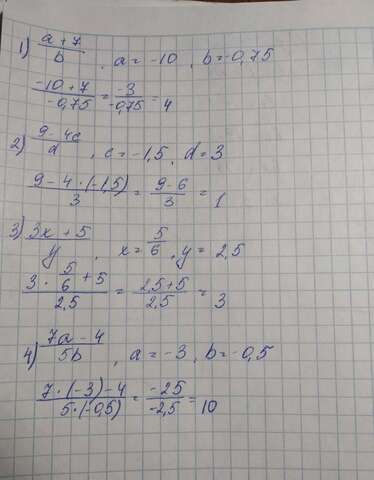 1) (a + 7)/b , a = -10 , b = -0,75
(-10 + 7)/(-0,75) = (-3)/(-0,75) = 4
2) (9 - 4c)/d , c = -1,5 , d = 3
(9 - 4 · (-1,5))/3 = (9 - 6)/3 = 1
3) (3x + 5)/y , x = 5/6 , y = 2,5
(3 · 5/6 + 5)/2,5 = (2,5 + 5)/2,5 = 3
4) (7a - 4)/5b , a = -3 , b = -0,5
(7 · (-3) - 4)/(5 · (-0,5)) = (-25)/(-2,5) = 10